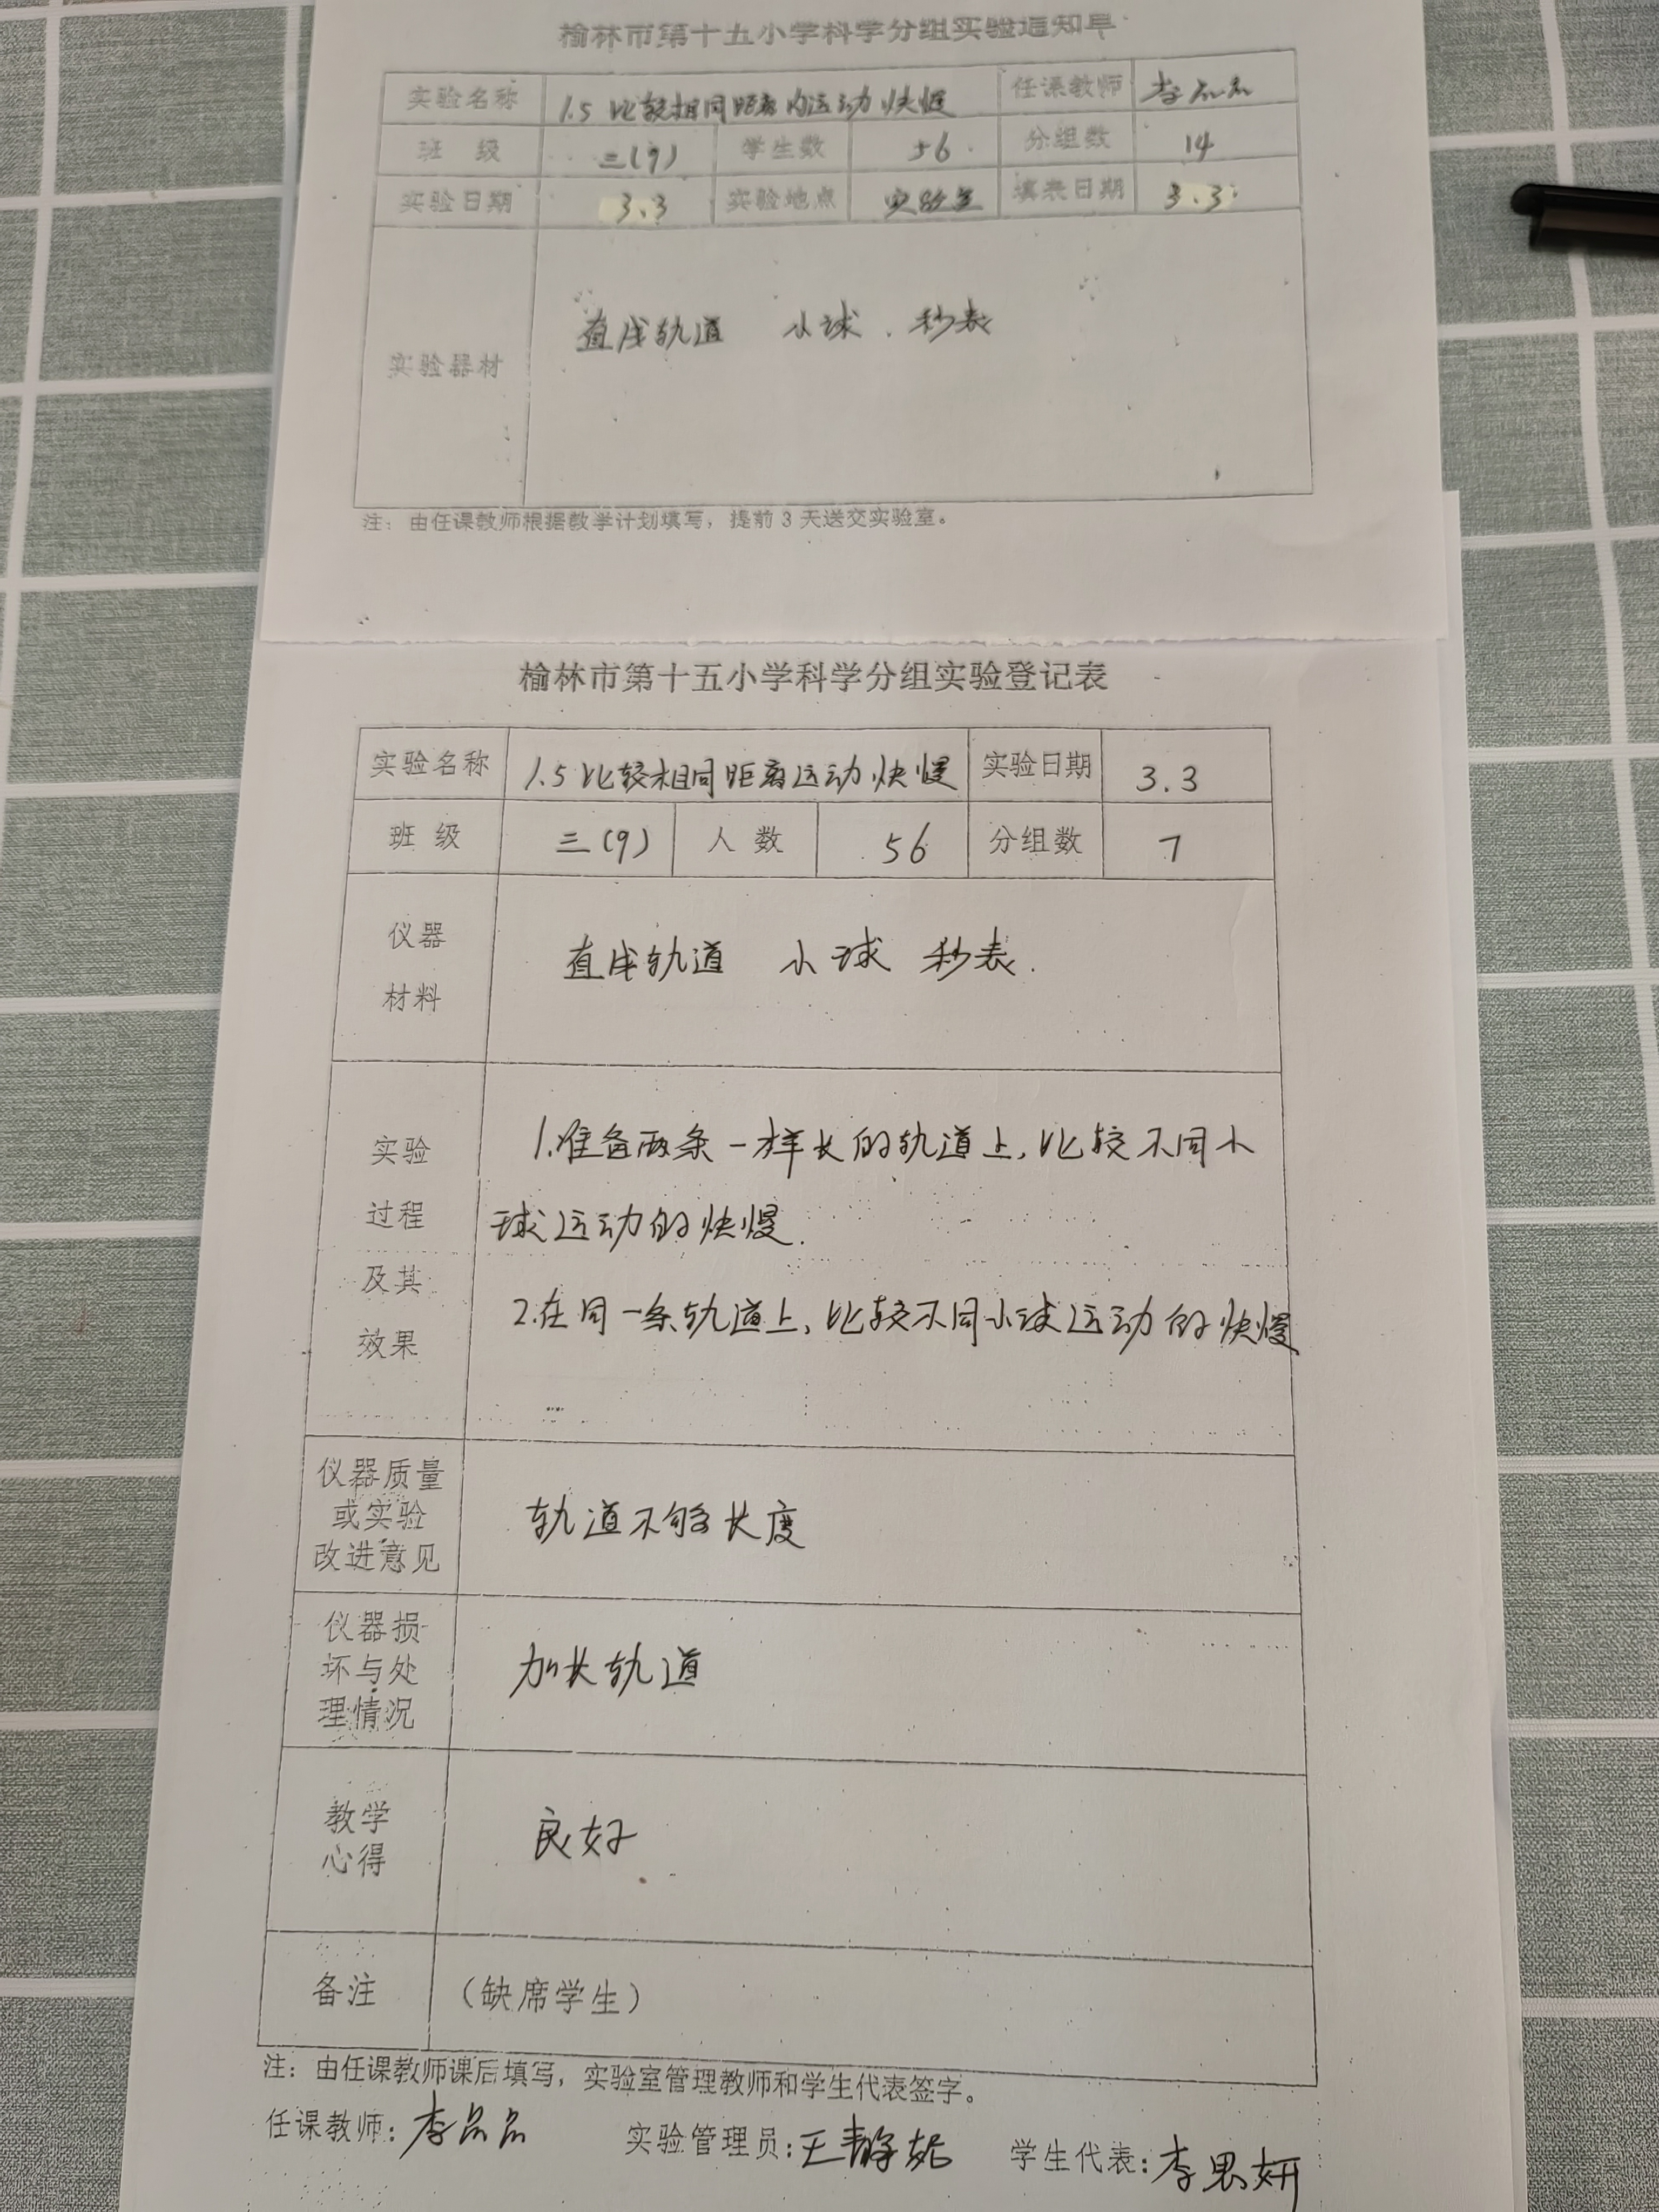 榆林市第十五小学科学分组实验通知单
实验名称 1.5 比较相同距离内运动快慢 任课教师 李品品
班 级 三(9) 学生数 56 分组数 14
实验日期 3.3 实验地点 实验室 填表日期 3.3
实验器材 直线轨道 小球 . 秒表
注:由任课教师根据教学计划填写,提前 3 天送交实验室。
榆林市第十五小学科学分组实验登记表
实验名称 1.5 比较相同距离运动快慢 实验日期 3.3
班 级 三(9) 人 数 56 分组数 7
仪器
材料
直线轨道 小球 秒表.
实验
过程
及其
效果
1.准备两条一样长的轨道上,比较不同小
球运动的快慢.
2.在同一条轨道上,比较不同小球运动的快慢
仪器质量
或实验
改进意见
轨道不够长度
仪器损
坏与处
理情况
加长轨道
教学
心得
良好
备注 (缺席学生)
注:由任课教师课后填写,实验室管理教师和学生代表签字。
任课教师:李品品 实验管理员:王静 学生代表:李思妍